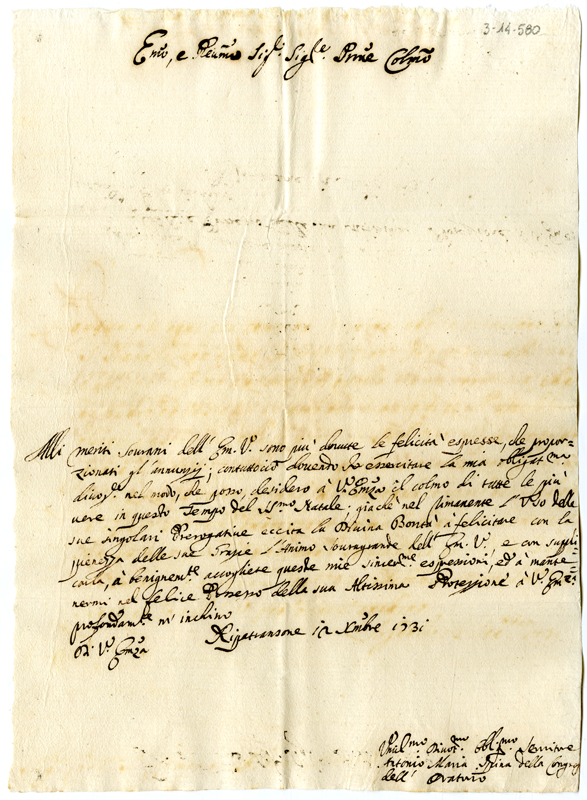 3-14-580
Emo, e Reumo Sigr. Sigre Prne Colmo
Alli meriti sourani dell' Em. V. sono più douute le felicità espresse, che propor=
zionati gl'annunzij; contuttociò douendo Io essercitare la mia obligatma
diuoz. nel modo, che posso, desidero à V. Emza il colmo di tutte le più
uere in questo Tempo del SSmo Natale: giache nel rimanente l'Uso delle
sue singolari Prerogatiue eccita la Diuina Bontà à felicitare con la
delle sue Grazie l'Animo Souragrande dell' Em. V., e con suppli
carla, à benignemte accogliere queste mie sincerme espressioni, ed à mante=
nermi nel felice Possesso della sua Altissima Protezzione à V. Emza
profondamte m'inchino
Di V. Emza Ripatransone 12 Xmbre 1731
Umilmo Diuotmo Obligmo Seruitore
Antonio Maria della Congreg
dell' Oratorio